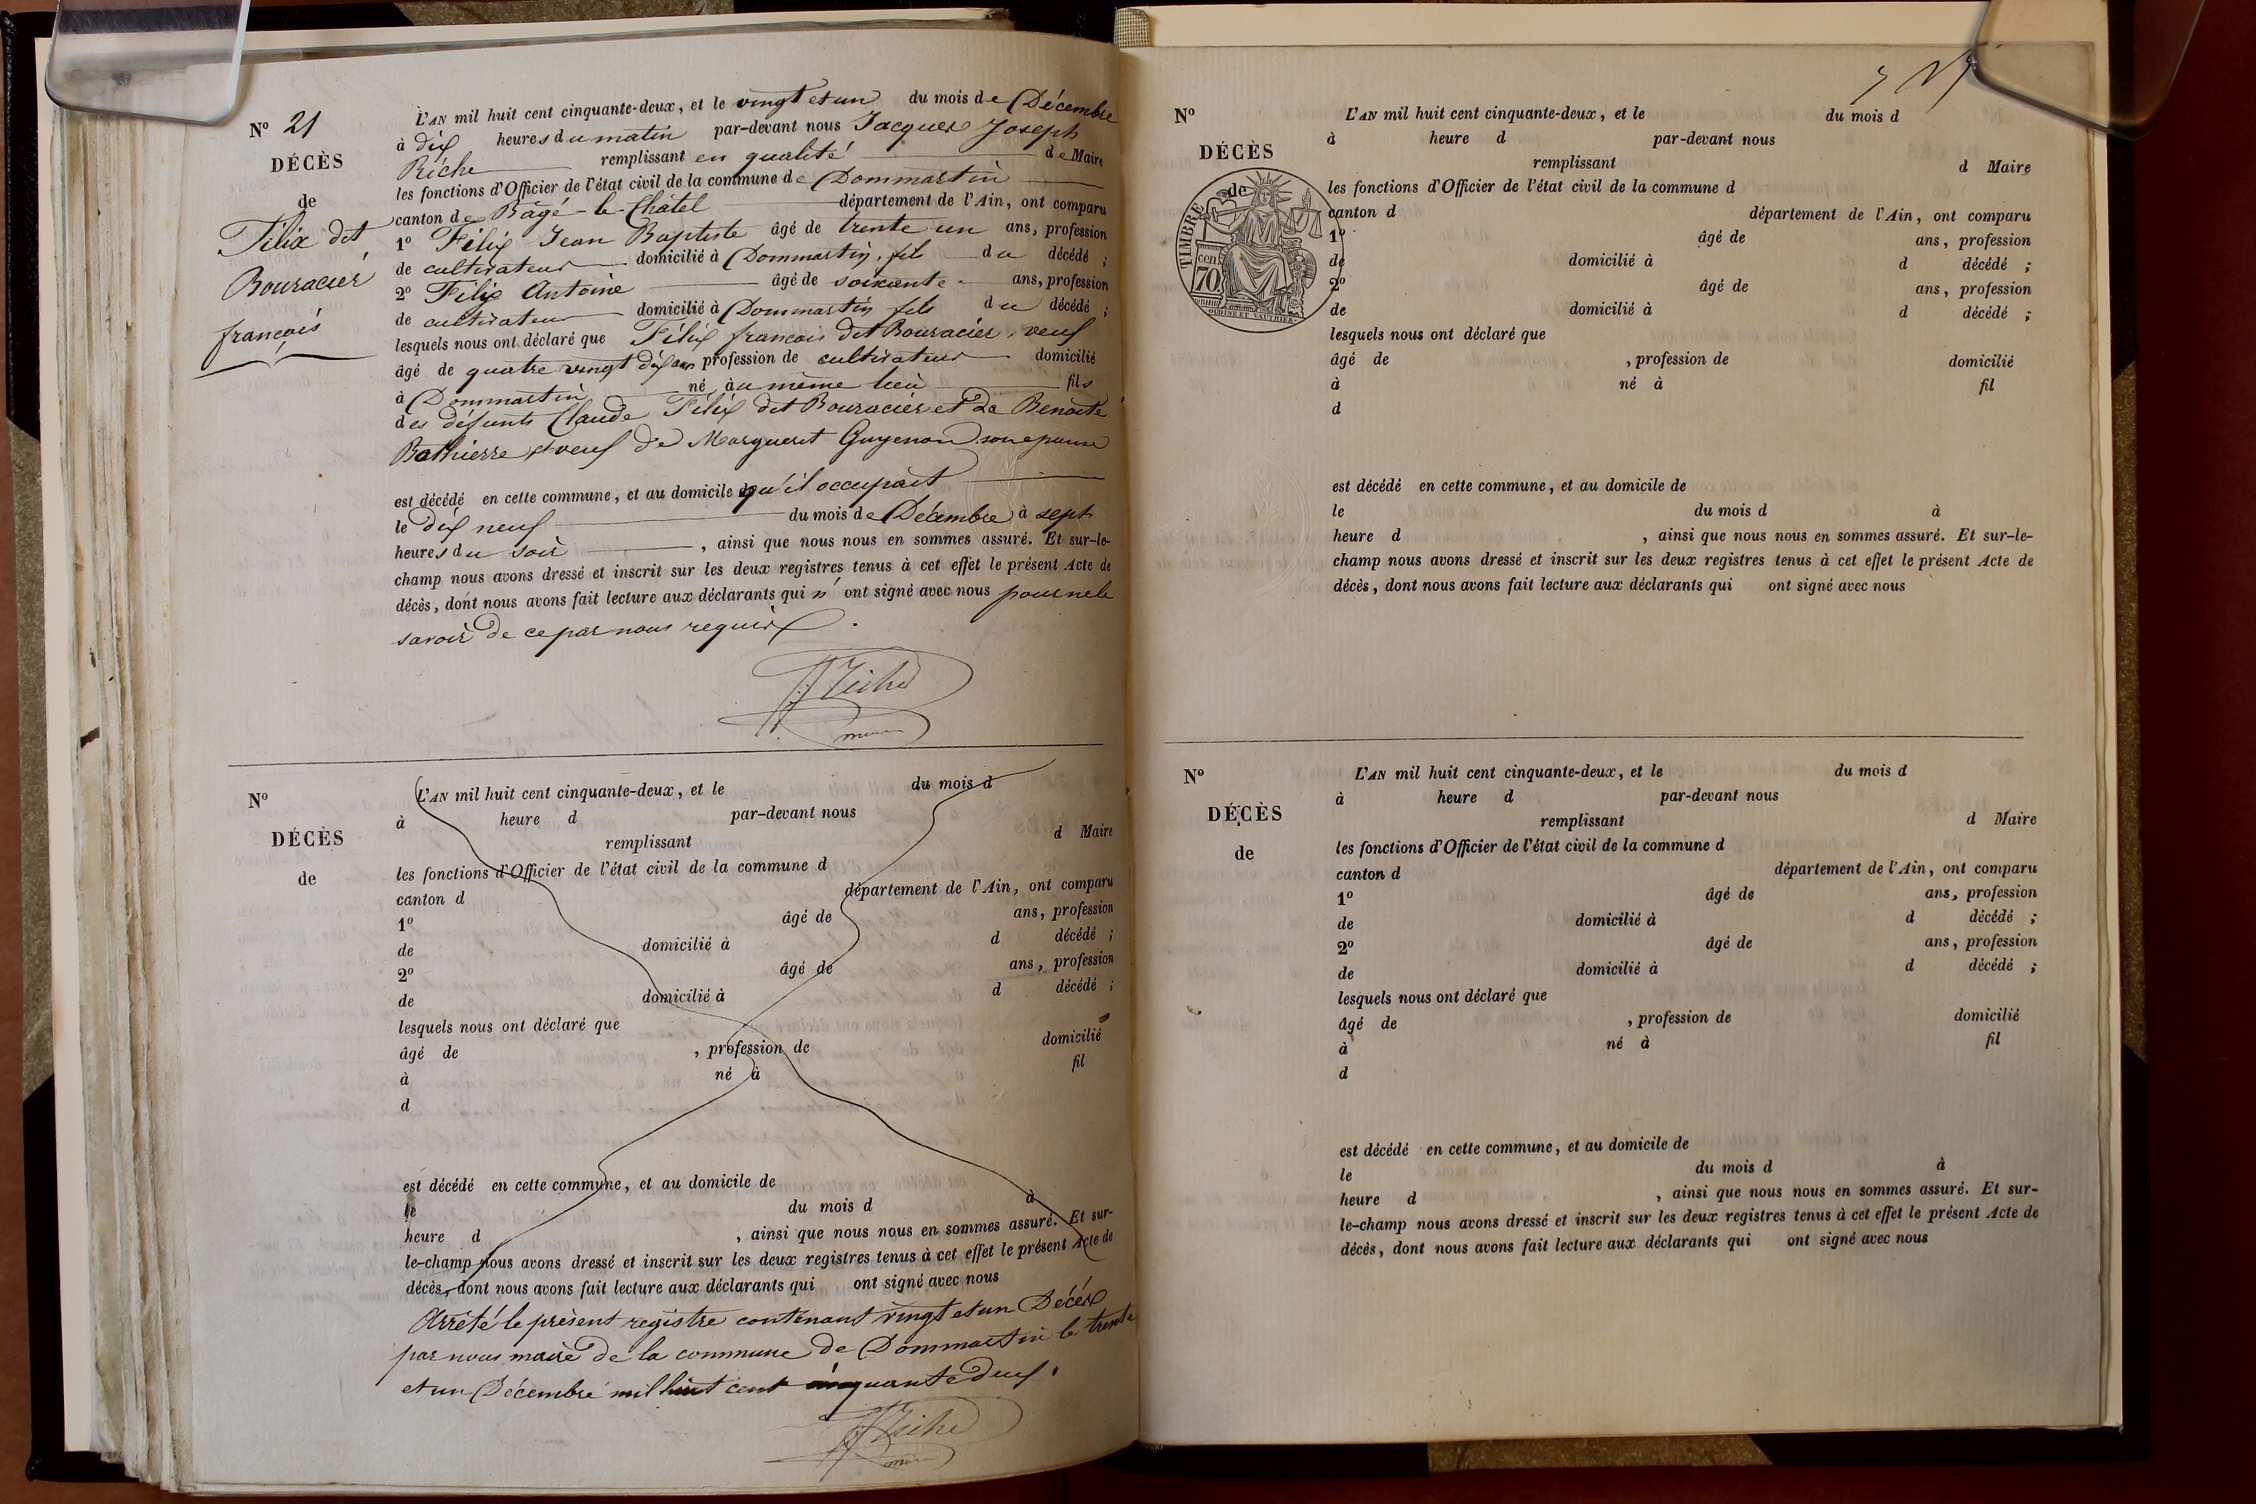 Nº 21
DÉCÈS
de
Félix dit
Bouracier
françois
L'AN mil huit cent cinquante-deux, et le vingt et un du mois de Décembre
à dix heures du matin par-devant nous Jacques Joseph
Riche remplissant en qualité de Maire
les fonctions d'Officier de l'état civil de la commune de Dommartin
canton de Bâgé-le-Châtel département de l'Ain, ont comparu
1º Félix Jean Baptiste âgé de trente un ans, profession
de cultivateur domicilié à Dommartin, fils du décédé ;
2º Félix Antoine âgé de soixante ans, profession
de cultivateur domicilié à Dommartin fils du décédé ;
lesquels nous ont déclaré que Félix francois dit Bouracier, veuf
âgé de quatre vingt dix ans profession de cultivateur domicilié
à Dommartin né au même lieu fils
des défunts Claude Félix dit Bouracier et de Benoite
Bathierre et veuf de Marguerit Guyenon son epouse
est décédé en cette commune, et au domicile qu'il occupait
le dix neuf du mois de Décembre à sept
heures du soir , ainsi que nous nous en sommes assuré. Et sur-le-
champ nous avons dressé et inscrit sur les deux registres tenus à cet effet le présent Acte de
décès, dont nous avons fait lecture aux déclarants qui n' ont signé avec nous pour ne le
savoir de ce par nous requis
Riche
maire
Nº
DÉCÈS
de
L'AN mil huit cent cinquante-deux, et le du mois d
à heure d par-devant nous
remplissant d Maire
les fonctions d'Officier de l'état civil de la commune d
canton d département de l'Ain, ont comparu
1º âgé de ans, profession
de domicilié à d décédé ;
2º âgé de ans, profession
de domicilié à d décédé ;
lesquels nous ont déclaré que
âgé de , profession de domicilié
à né à fil
d
est décédé en cette commune, et au domicile de
le du mois d à
heure d , ainsi que nous nous en sommes assuré. Et sur-
le-champ nous avons dressé et inscrit sur les deux registres tenus à cet effet le présent Acte de
décès, dont nous avons fait lecture aux déclarants qui ont signé avec nous
Arrêté le présent registre contenant vingt et un Décès
par nous maire de la commune de Dommartin le trente
et un Décembre mil huit cent cinquante deux.
Riche
maire
Nº
DÉCÈS
de
TIMBRE
70 cen
OUDINÉ ET VAUTHIER
L'AN mil huit cent cinquante-deux, et le du mois d
à heure d par-devant nous
remplissant d Maire
les fonctions d'Officier de l'état civil de la commune d
canton d département de l'Ain, ont comparu
1º âgé de ans, profession
de domicilié à d décédé ;
2º âgé de ans, profession
de domicilié à d décédé ;
lesquels nous ont déclaré que
âgé de , profession de domicilié
à né à fil
d
est décédé en cette commune, et au domicile de
le du mois d à
heure d , ainsi que nous nous en sommes assuré. Et sur-le-
champ nous avons dressé et inscrit sur les deux registres tenus à cet effet le présent Acte de
décès, dont nous avons fait lecture aux déclarants qui ont signé avec nous
Nº
DÉCÈS
de
L'AN mil huit cent cinquante-deux, et le du mois d
à heure d par-devant nous
remplissant d Maire
les fonctions d'Officier de l'état civil de la commune d
canton d département de l'Ain, ont comparu
1º âgé de ans, profession
de domicilié à d décédé ;
2º âgé de ans, profession
de domicilié à d décédé ;
lesquels nous ont déclaré que
âgé de , profession de domicilié
à né à fil
d
est décédé en cette commune, et au domicile de
le du mois d à
heure d , ainsi que nous nous en sommes assuré. Et sur-
le-champ nous avons dressé et inscrit sur les deux registres tenus à cet effet le présent Acte de
décès, dont nous avons fait lecture aux déclarants qui ont signé avec nous